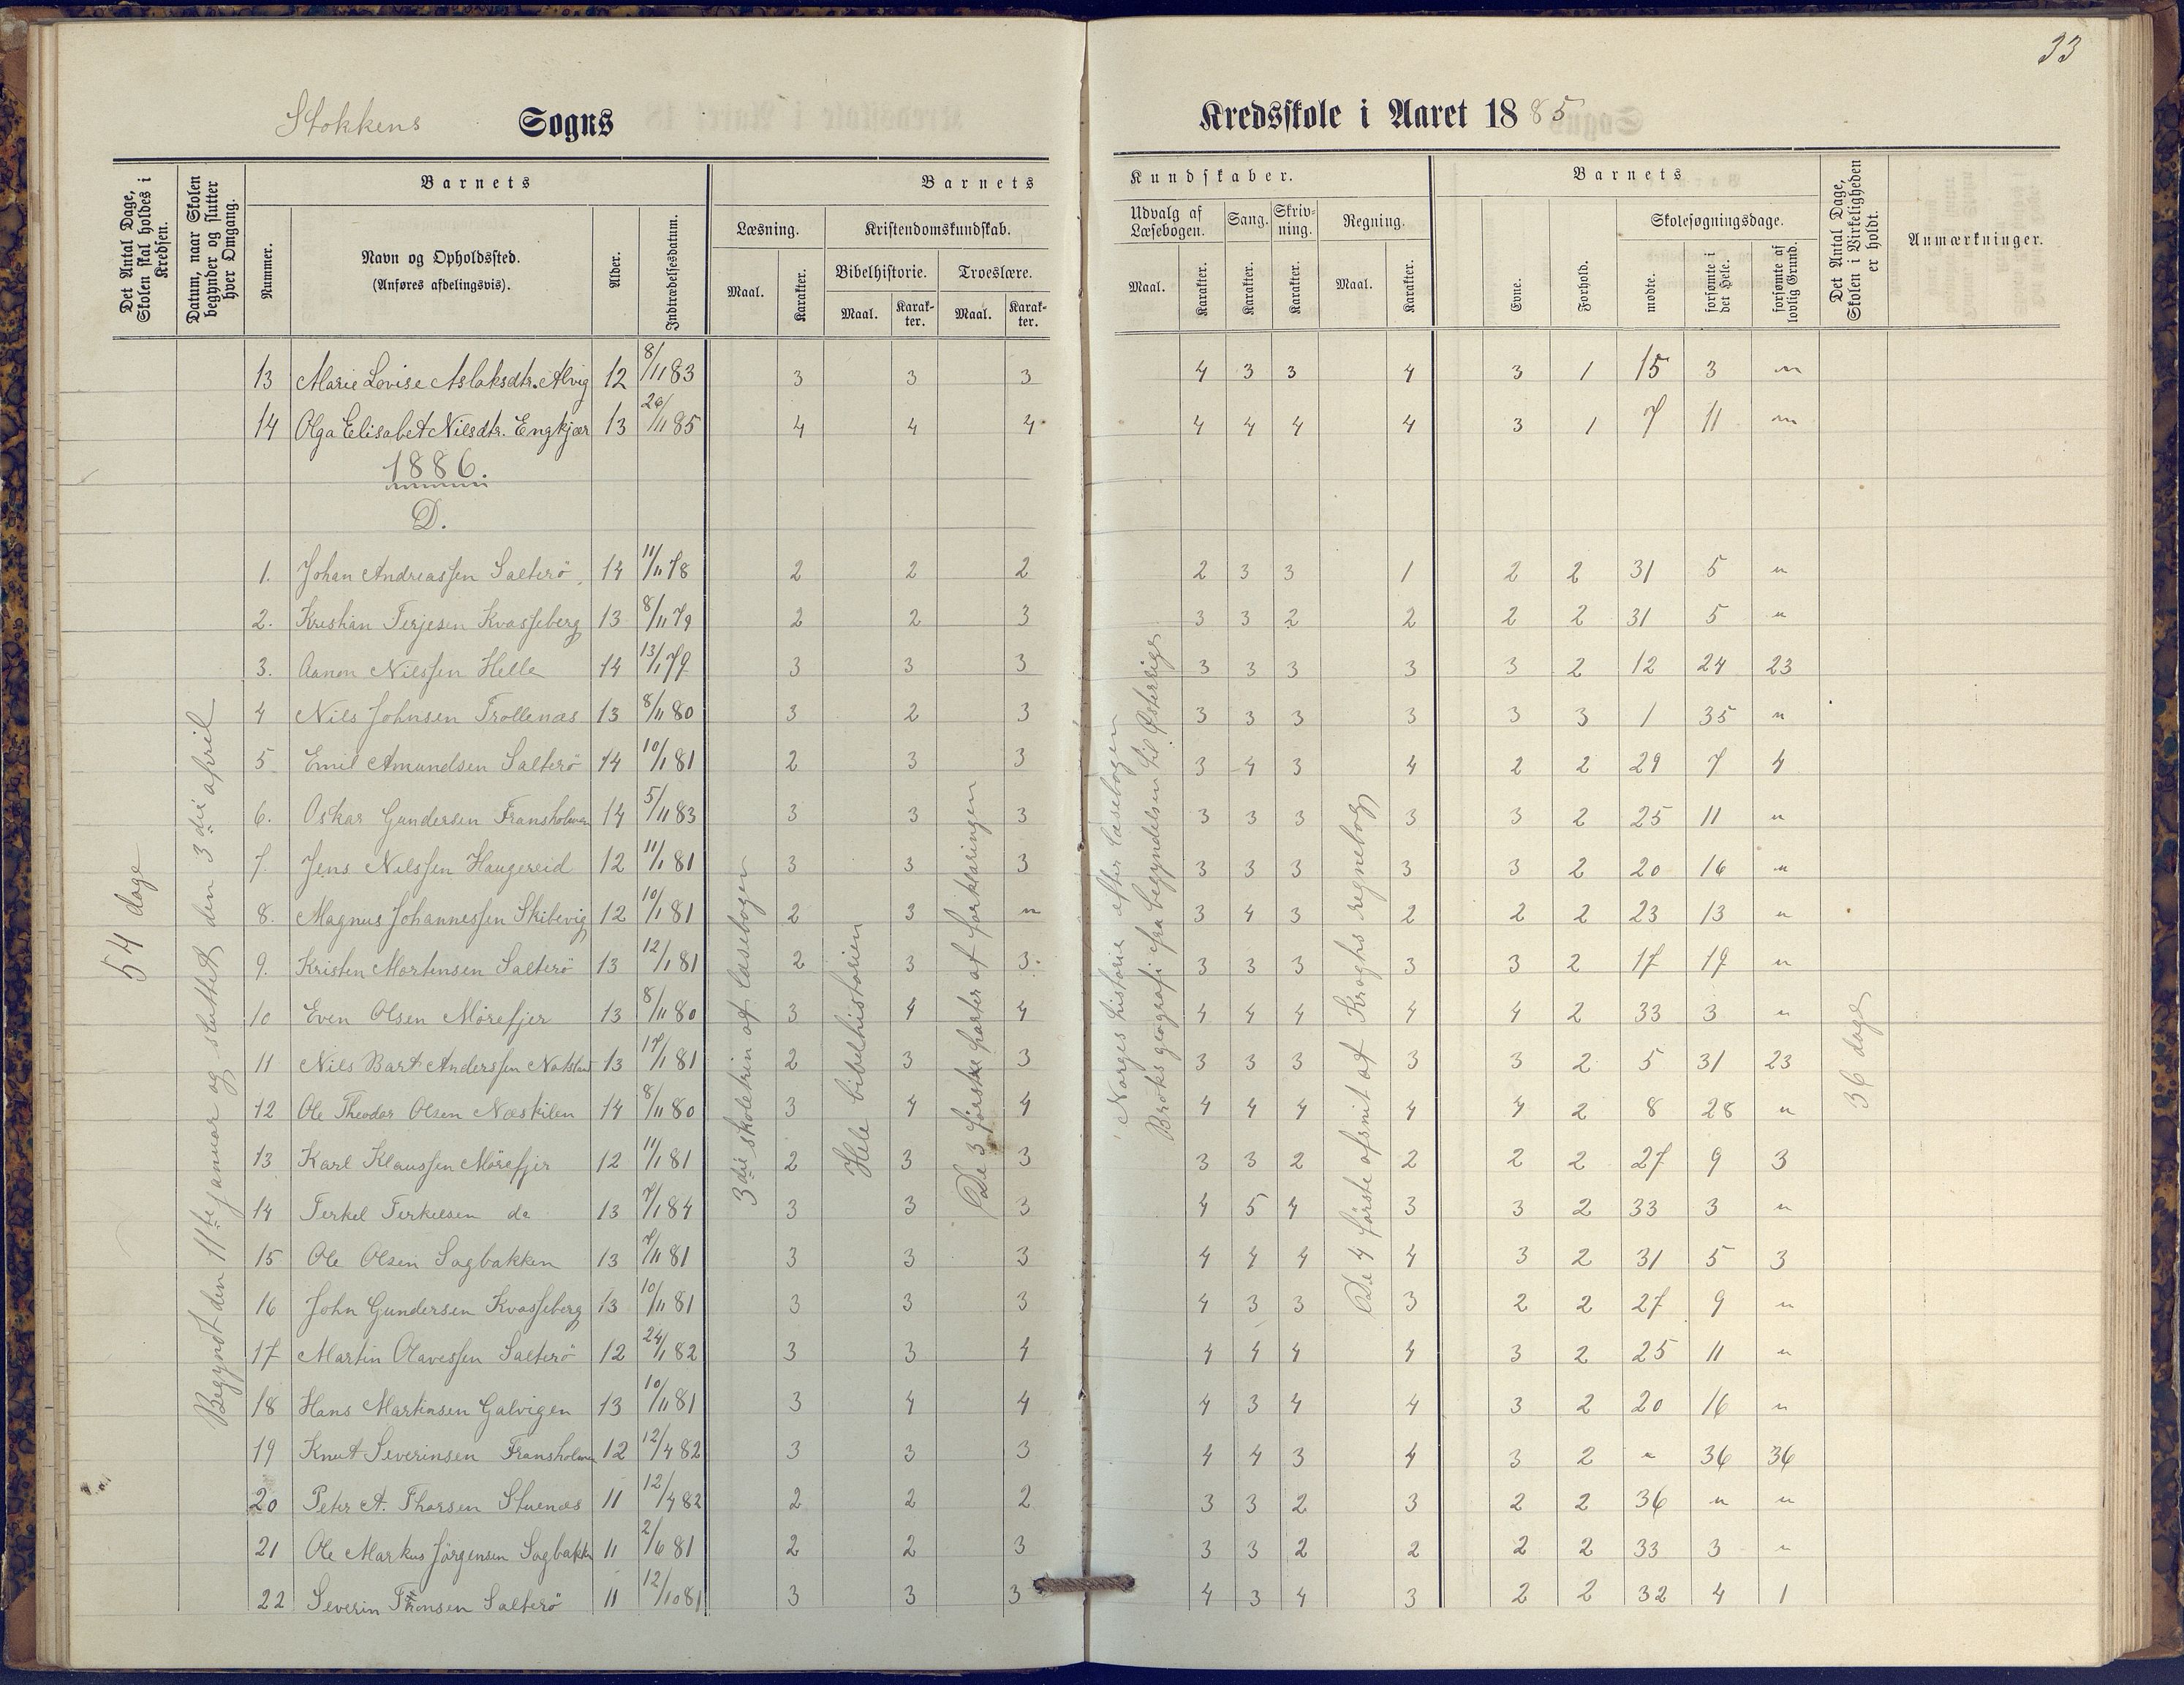 33
Stokkens Sogns Kredsskole i Aaret 1885
Det Antal Dage, Skolen skal holdes i Kredsen.
Datum, naar Skolen begynder og slutter hver Omgang.
Barnets
Nummer.
Navn og Opholdssted.
(Anføres afdelingsvis).
Alder.
Indtrædelsesdatum.
Barnets Kundskaber.
Læsning.
Maal. Karakter.
Kristendomskundskab.
Bibelhistorie. Troeslære.
Maal. Karakter. Maal. Karakter.
Udvalg af Læsebogen.
Maal. Karakter.
Sang.
Karakter.
Skrivning.
Karakter.
Regning.
Maal. Karakter.
Barnets
Evne.
Forhold.
Skolesøgningsdage.
mødte.
forsømte i det Hele.
forsømte af lovlig Grund.
Det Antal Dage, Skolen i Virkeligheden er holdt.
Anmærkninger.
13 Marie Lovise Aslaksdtr. Alvig 12 8/11 83 3 3 3 4 3 3 4 3 1 15 3 "
14 Olga Elisabet Nilsdtr. Engkjær 13 26/11 85 4 4 4 4 4 4 4 3 1 7 11 "
1886.
D.
1. Johan Andreassen Salterö 14 11/11 78 2 2 2 2 3 3 1 2 2 31 5 "
2. Kristian Terjesen Kvasseberg 13 8/11 79 2 2 3 3 3 2 2 2 2 31 5 "
3. Aanon Nilssen Helle 14 13/1 79 3 3 3 3 3 3 3 3 2 12 24 23
4 Nils Johnsen Trollenæs 13 8/11 80 3 2 3 3 3 3 3 3 3 1 35 "
5 Emil Amundsen Salterö 14 10/1 81 2 3 3 3 4 3 4 2 2 29 7 4
6. Oskar Gundersen Fransholmen 14 5/11 83 3 3 3 3 3 3 3 3 2 25 11 "
7. Jens Nilssen Haugereid 12 11/1 81 3 3 3 3 3 3 3 3 2 20 16 "
8. Magnus Johannessen Skibevig 12 10/1 81 2 3 " 3 4 3 2 2 2 23 13 "
9. Kristen Mortensen Salterö 13 12/1 81 2 3 3 3 3 3 3 3 2 17 19 "
10 Even Olsen Mörefjer 13 8/11 80 3 4 4 4 4 4 4 4 2 33 3 "
11 Nils Bart Anderssen 13 17/1 81 2 3 3 3 3 3 3 3 2 5 31 23
12 Ole Theodor Olsen Næskilen 14 8/11 80 3 4 4 4 4 4 4 4 2 8 28 "
13 Karl Klaussen Mörefjer 12 11/1 81 2 3 3 3 3 2 2 2 2 27 9 3
14 Terkel Terkelsen do 13 7/1 84 3 3 3 4 5 4 3 3 2 33 3 "
15 Ole Olsen Sagbakken 13 7/11 81 3 3 3 4 4 4 4 3 2 31 5 3
16 John Gundersen Kvasseberg 13 10/11 81 3 3 3 4 3 3 3 2 2 27 9 "
17 Martin Olavessen Salterö 12 24/1 82 3 3 4 4 4 4 4 3 2 25 11 "
18 Hans Martinsen Galvigen 13 10/11 81 3 4 4 4 3 4 4 3 2 20 16 "
19 Knut Severinsen Fransholmen 12 12/4 82 3 3 3 4 4 3 4 3 2 " 36 36
20 Peter A. Thorsen Stuenæs 11 12/4 82 2 2 2 3 3 2 3 2 2 36 " "
21 Ole Markus Jörgensen Sagbakken 11 2/6 81 2 2 3 3 3 2 2 2 2 33 3 "
22 Severin Thonsen Salterö 11 12/10 81 3 3 3 4 3 4 3 2 2 32 4 1
54 dage
Begyndt den 11te januar og sluttet den 3die april
3die skoletrin af læsebogen
Hele bibelhistorien
De 3 første parter af forklaringen
Norges historie efter læsebogen
Broks geografi fra begyndelsen til Østerrige
De 4 første afsnit af Kroghs regnebog
36 dage